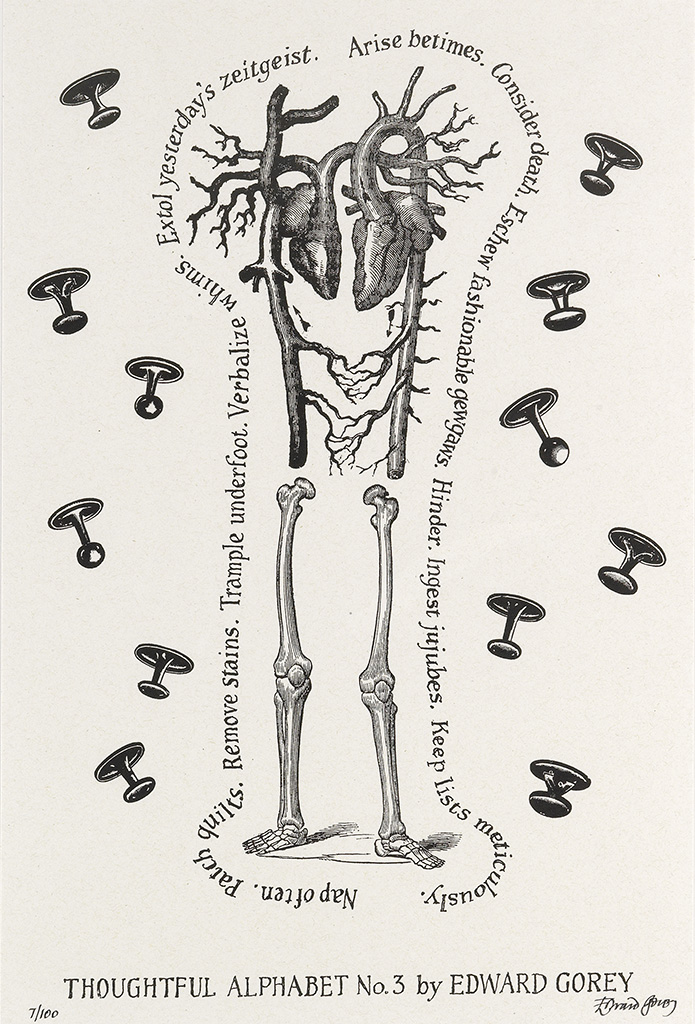 Arise betimes. Consider death. Eschew fashionable gewgaws. Hinder. Ingest jujubes. Keep lists meticulously. Nap often. Patch quilts. Remove stains. Trample underfoot. Verbalize whims. Extol yesterday's zeitgeist.
THOUGHTFUL ALPHABET No. 3 by EDWARD GOREY
7/100
Edward Gorey